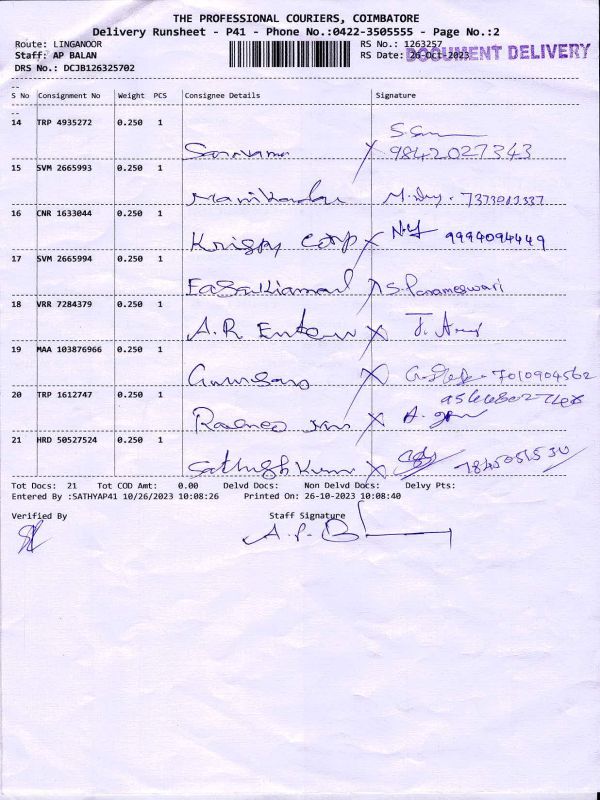 THE PROFESSIONAL COURIERS, COIMBATORE
Delivery Runsheet - P41 - Phone No.:0422-3505555 - Page No.:2
Route: LINGANOOR RS No.: 1263257
Staff: AP BALAN RS Date: 26-Oct-2023 DOCUMENT DELIVERY
DRS No.: DCJB126325702
--
S No Consignment No Weight PCS Consignee Details Signature
--
14 TRP 4935272 0.250 1
9842027343
15 SVM 2665993 0.250 1
Manikandan
16 CNR 1633044 0.250 1
Krispy Corp 9994094449
17 SVM 2665994 0.250 1
S. Parameswari
18 VRR 7284379 0.250 1
A.R
19 MAA 103876966 0.250 1
7010904562
20 TRP 1612747 0.250 1
21 HRD 50527524 0.250 1
Sathish Kumar
Tot Docs: 21 Tot COD Amt: 0.00 Delvd Docs: Non Delvd Docs: Delvy Pts:
Entered By :SATHYAP41 10/26/2023 10:08:26 Printed On: 26-10-2023 10:08:40
Verified By Staff Signature
A.P.